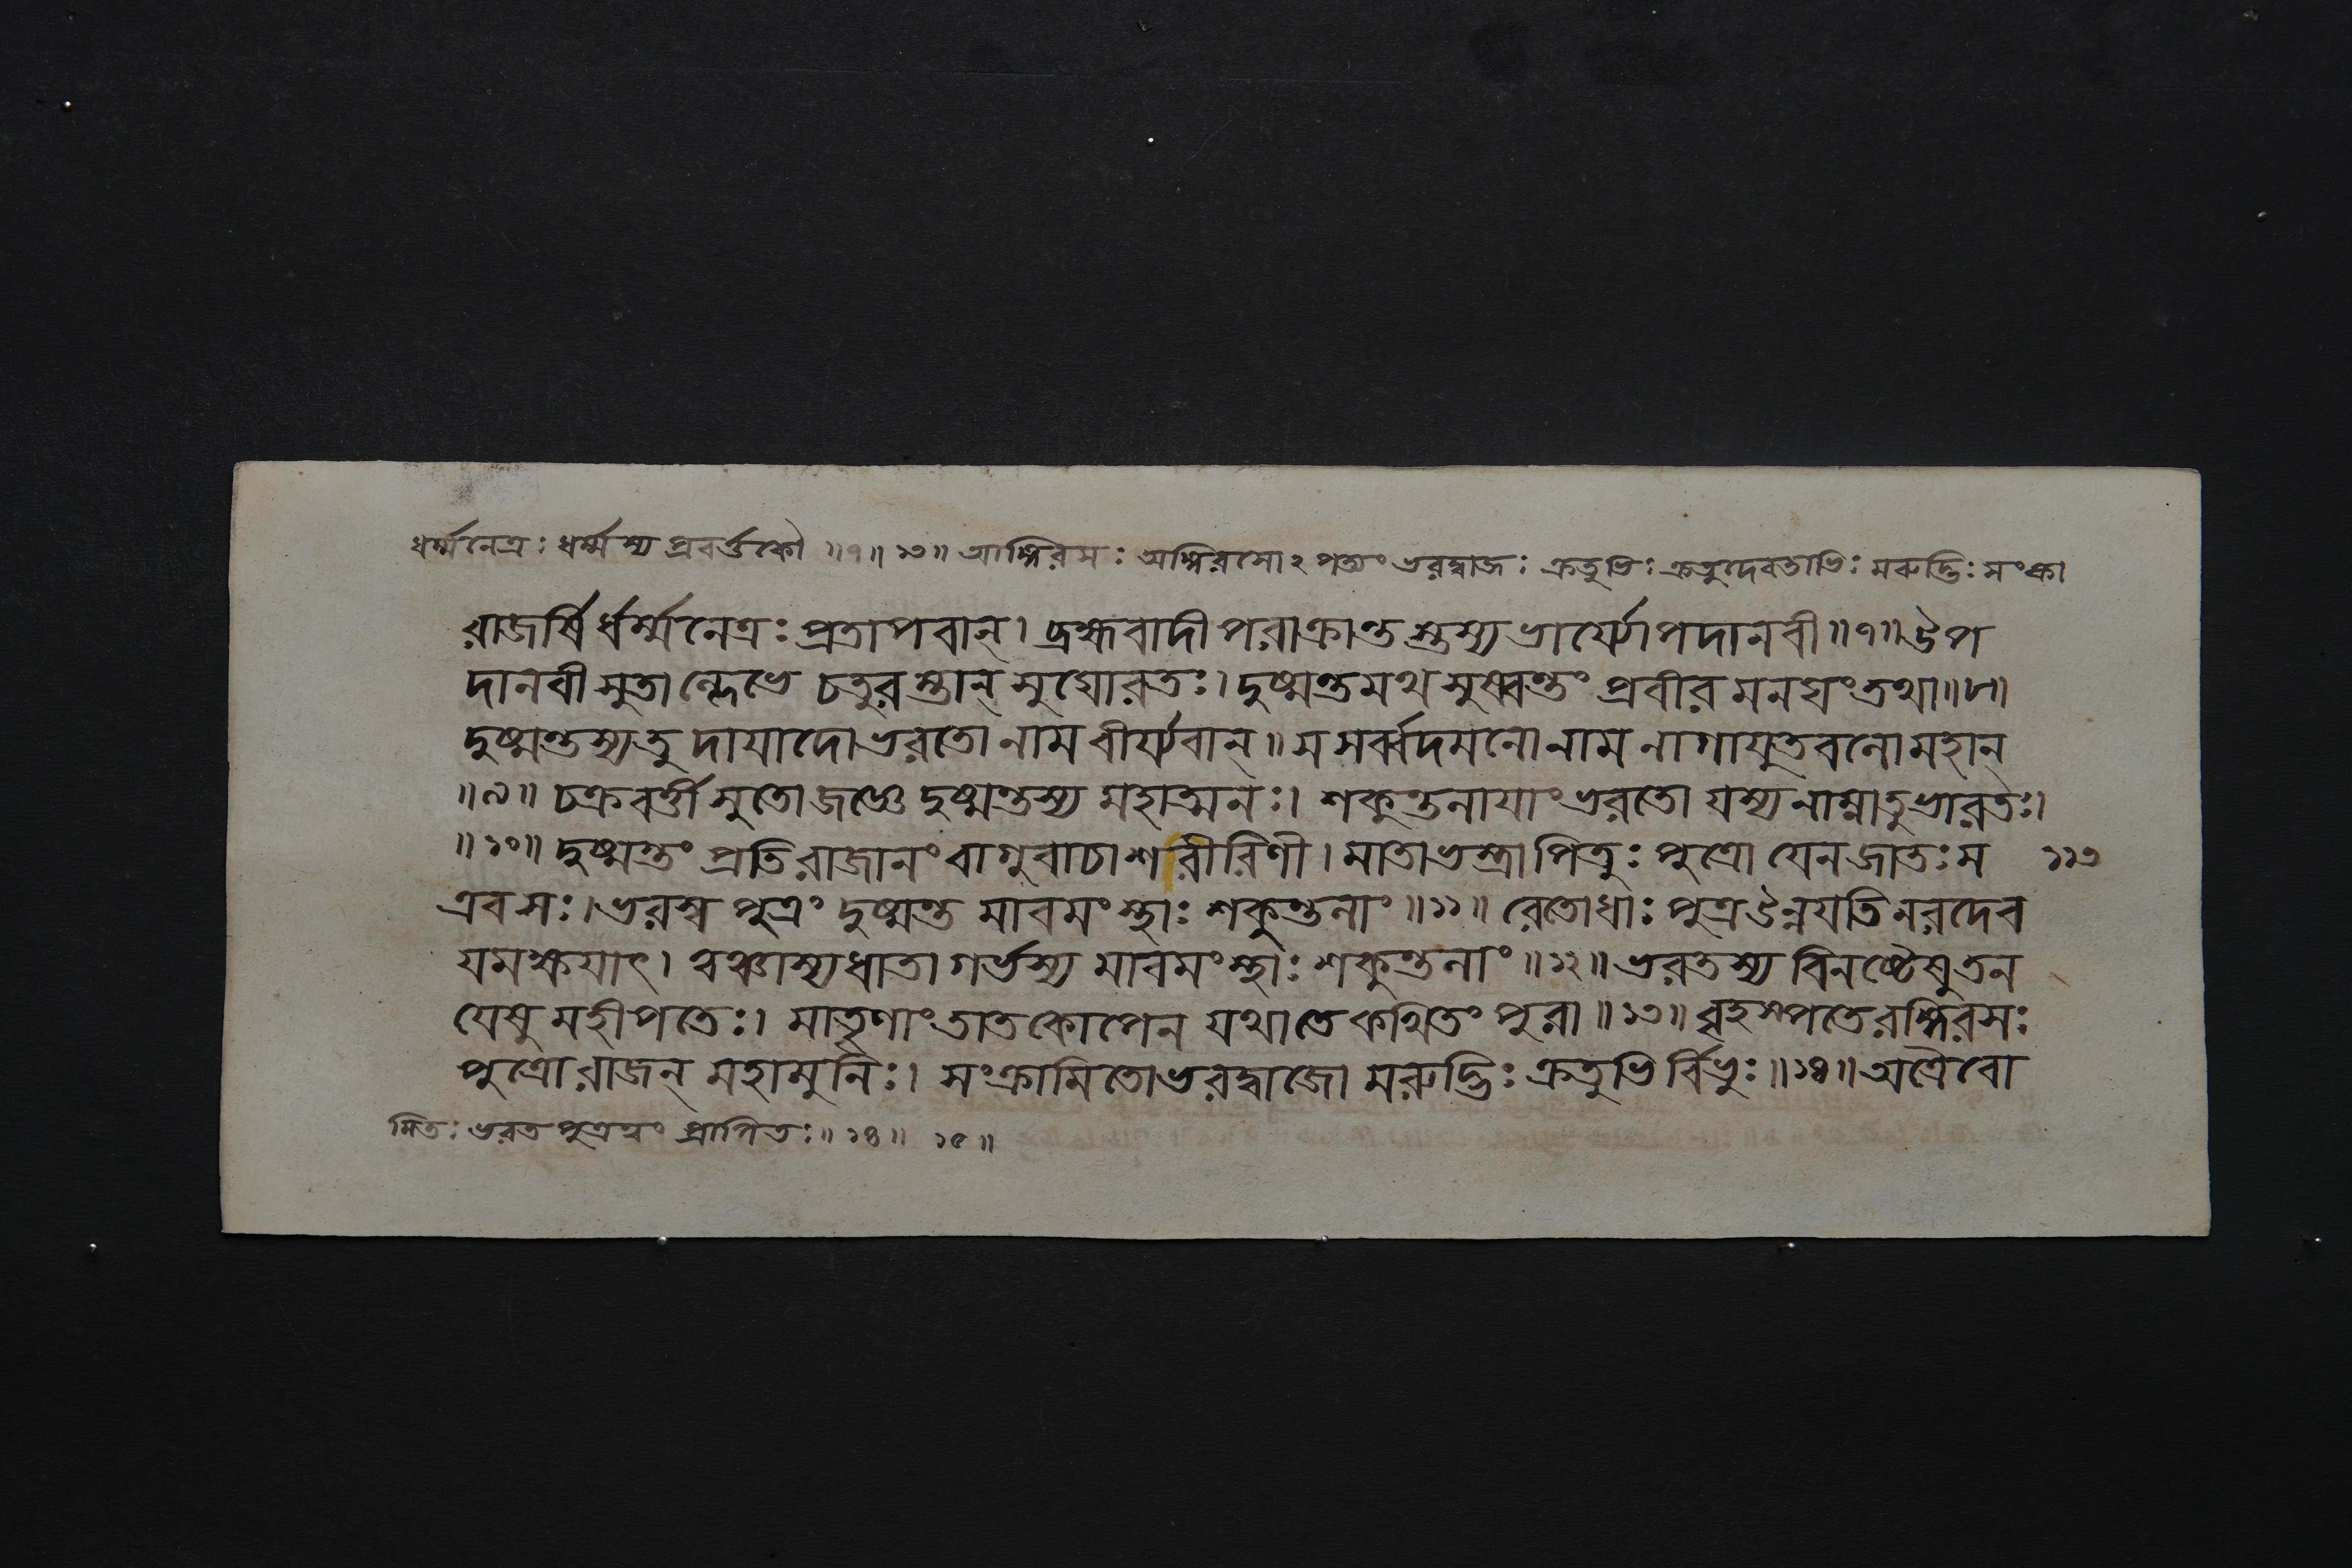 ধর্ম্মনেত্রঃ ধর্ম্মস্য প্রবর্ত্তকৌ ॥৭॥ ১৩॥ আঙ্গিরসঃ অঙ্গিরসোঽপত্যং ভরদ্বাজঃ ক্রতুভিঃ ক্রতুদেবতাভিঃ মরুদ্ভিঃ সংক্রা
রাজর্ষির্ধর্ম্মনেত্রঃ প্রতাপবান্। ব্রহ্মবাদী পরাক্রান্তস্তস্য ভার্য্যোপদানবী॥৭॥ ঔপ
দানবী সুতান্লেভে চতুরস্তান্ সুঘোরতঃ। দুষ্মন্তমথ সুষ্বন্তং প্রবীরমনঘং তথা॥৮॥
দুষ্মন্তস্য তু দায়াদো ভরতো নাম বীর্য্যবান্॥ স সর্ব্বদমনো নাম নাগাযুতবলো মহান্
॥৯॥ চক্রবর্ত্তী সুতো জজ্ঞে দুষ্মন্তস্য মহাত্মনঃ। শকুন্তলায়াং ভরতো যস্য নাম্না তু ভারতঃ।
॥১০॥ দুষ্মন্তং প্রতি রাজানং বাগুবাচাশরীরিণী। মাতা ভস্ত্রা পিতুঃ পুত্রো যেন জাতঃ স ১১৩
এব সঃ। ভরস্ব পুত্রং দুষ্মন্ত মাবমংস্থাঃ শকুন্তলাং॥১১॥ রেতোধাঃ পুত্র উন্নয়তি নরদেব
যমক্ষয়াৎ। ত্বঞ্চাস্য ধাতা গর্ভস্য মাবমংস্থাঃ শকুন্তলাং॥১২॥ ভরতস্য বিনষ্টেষু তন
য়েষু মহীপতেঃ। মাতৄণাং তাত কোপেন যথা তে কথিতং পুরা॥১৩॥ বৃহস্পতেরঙ্গিরসঃ
পুত্রো রাজন্ মহামুনিঃ। সংক্রামিতো ভরদ্বাজো মরুদ্ভিঃ ক্রতুভির্বিভুঃ॥১৪॥ অত্রৈবো
মিতঃ ভরতপুত্রত্বং প্রাপিতঃ॥ ১৪॥ ১৫॥